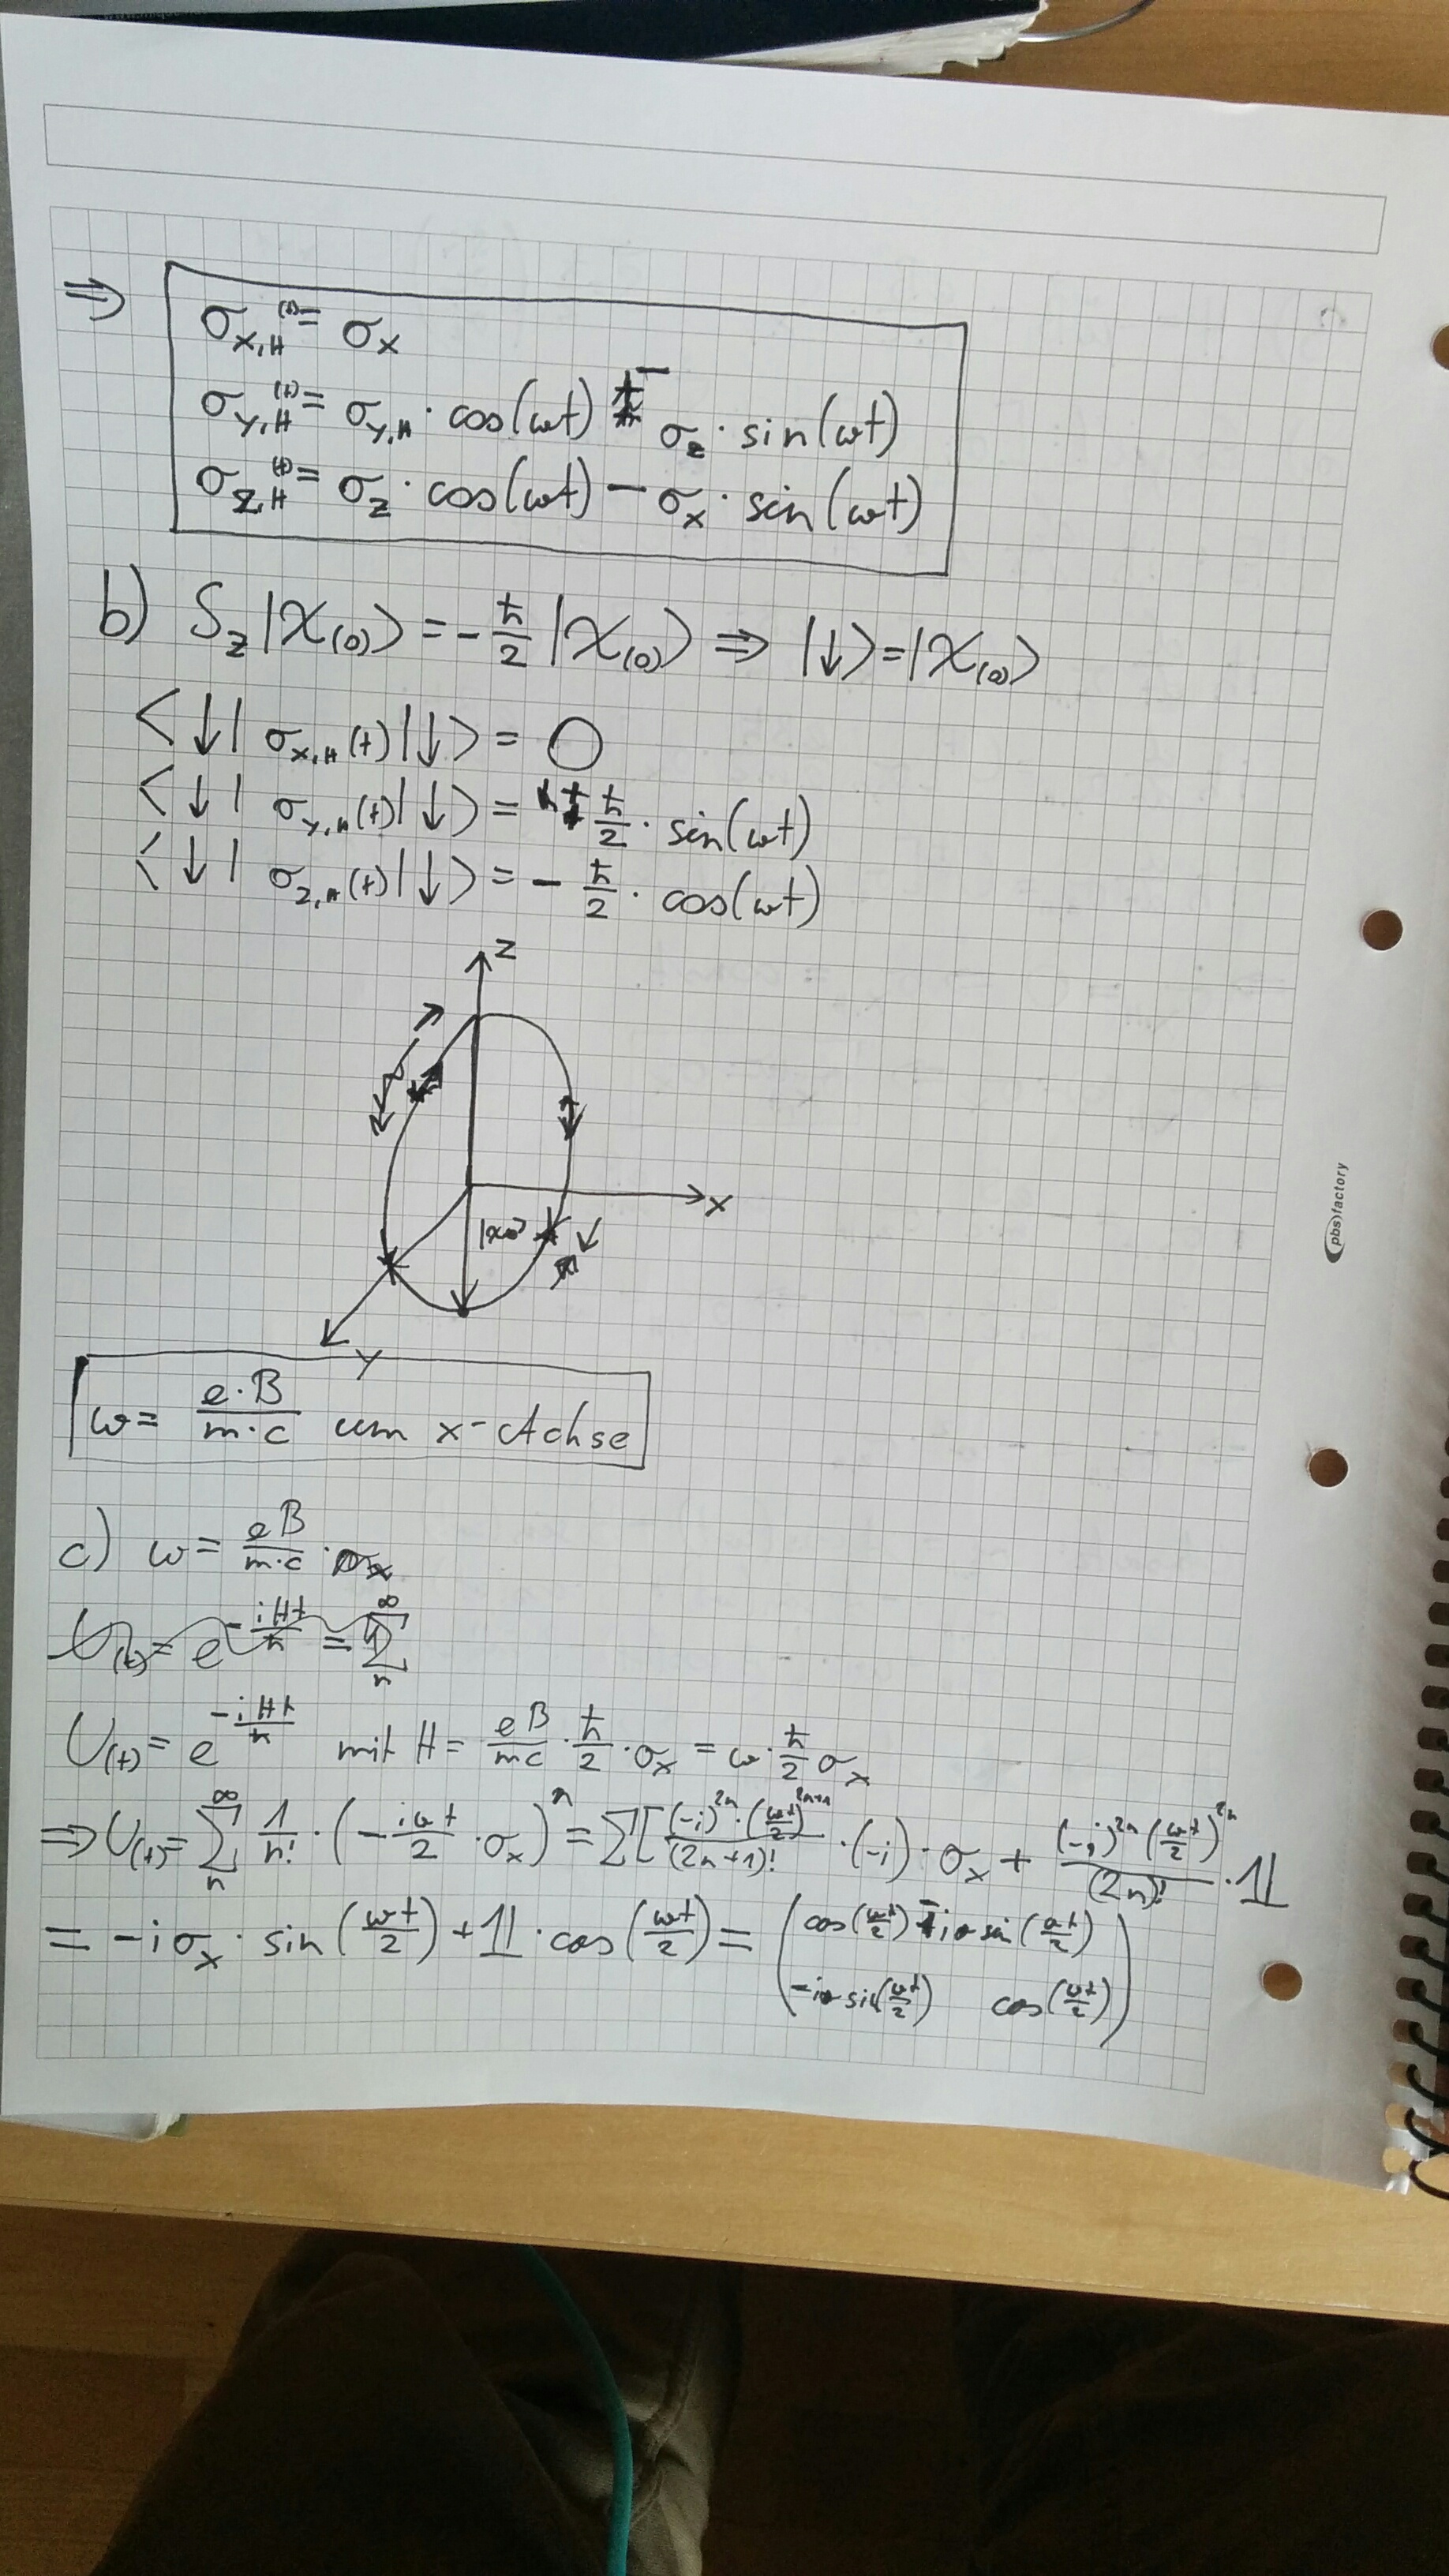 ⇒ σ_{x,H}^{(t)} = σ_x
σ_{y,H}^{(t)} = σ_{y,H} · cos(ωt) - σ_z · sin(ωt)
σ_{z,H}^{(t)} = σ_z · cos(ωt) - σ_x · sin(ωt)
b) S_z |χ_{(0)}⟩ = - ħ/2 |χ_{(0)}⟩ ⇒ |↓⟩ = |χ_{(0)}⟩
⟨↓| σ_{x,H}(t) |↓⟩ = 0
⟨↓| σ_{y,H}(t) |↓⟩ = ħ/2 · sin(ωt)
⟨↓| σ_{z,H}(t) |↓⟩ = - ħ/2 · cos(ωt)
z
x
y
ω = e·B/m·c um x-Achse
c) ω = eB/m·c
U_{(t)} = e^{-iHt/ħ} = Σ_n^∞
U_{(t)} = e^{-iHt/ħ} mit H = eB/mc · ħ/2 · σ_x = ω · ħ/2 σ_x
⇒ U_{(t)} = Σ_n^∞ 1/n! · (- iωt/2 · σ_x)^n = Σ [ (-i)^{2n} · (ωt/2)^{2n+1} / (2n+1)! · (-i) · σ_x + (-i)^{2n} (ωt/2)^{2n} / (2n)! · 𝟙
= -i σ_x · sin(ωt/2) + 𝟙 · cos(ωt/2) = ( cos(ωt/2) -i sin(ωt/2)
-i sin(ωt/2) cos(ωt/2) )
pbs factory